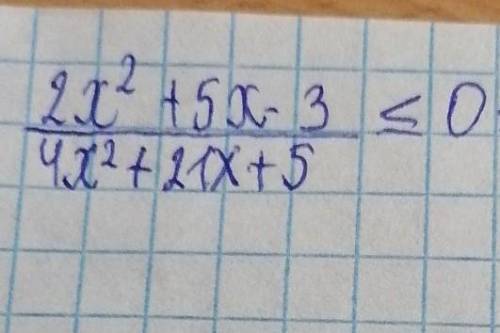 2x² + 5x - 3 ≤ 0
4x² + 21x + 5